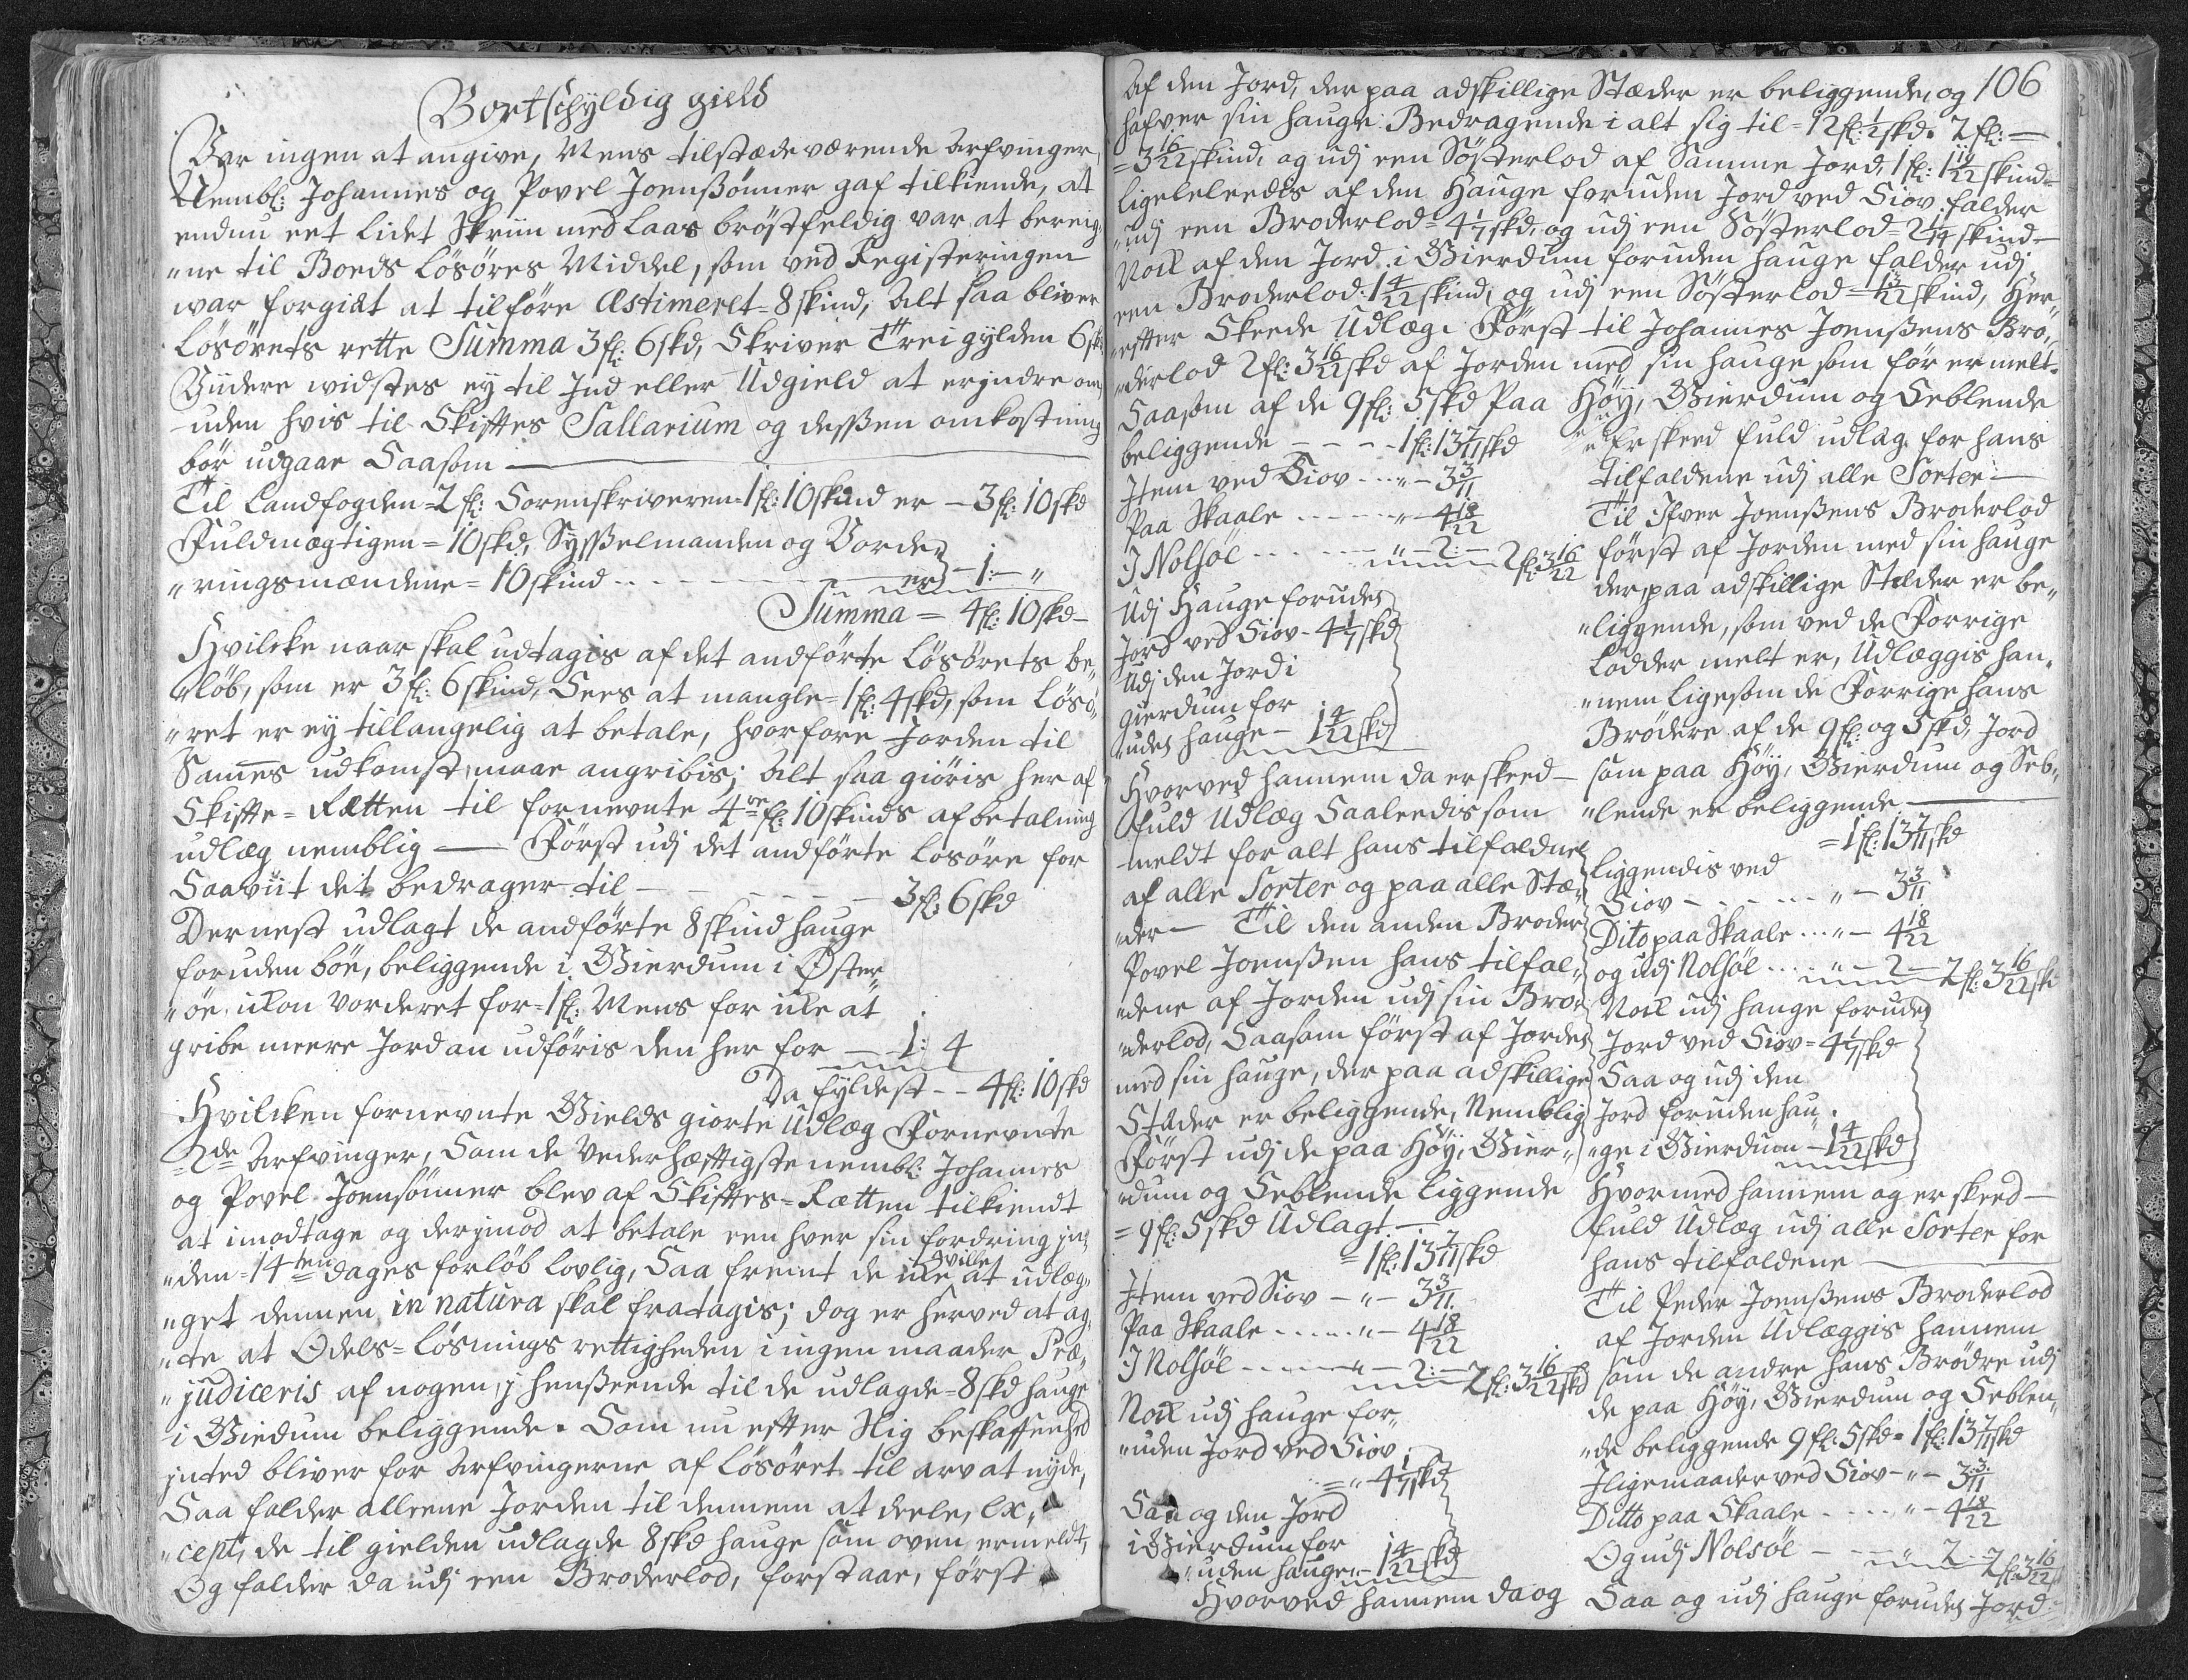 Bortschyldig gield
Var ingen at angive, Mens tilstædeværende Arfvinger,
Nembl: Johannes og Povel Joensßönner gaf tilkiende, at
endnu eet lidet Skriin med Laas bröstfeldig var at bereig„
„ne til Boeds Lösöres Middel, som ved Registeringen
war forgiët at tilföre Æstimeret = 8 skind, Alt saa bliver
Lösörets rette Summa 3 fl: 6 skd, Skriver Trei gylden 6 sk:
Viidere widstes ey til Ind eller Udgield at erindre om
uden hvis til Skifftes Sallarium og desßen omkostning
bör udgaae Saasom —
Til Landfogden = 2 fl: Sorenskriveren = 1 fl: 10 skind er — 3 fl: 10 skd
Fuldmægtigen = 10 skd, Sysßelmanden og Vorde„
„ringsmændene = 10 skind - - - er — 1: — „
Summa = 4 fl: 10 skd —
Hvilcke naar skal udtagis af det andförte Lösörets be„
„löb, som er 3 fl: 6 skind, Sees at mangle = 1 fl: 4 skd, som Lösö„
„ret er ey tillangelig at betale, hvorfore Jorden til
Sames udkomst maae angribis; Alt saa giöris her af
Skiffte = Rætten til fornevnte 4re fl: 10 skinds afbetalning
udlæg nemblig — Först udj det andförte Losöre for
Saaviit det bedrager til — — — 3 fl: 6 skd
Dernest udlagt de andförte 8 skind hauge
foruden böe, beliggende i Gierdum i Öster„
„öe, icon vorderet for = 1 fl: Mens for icke at
gribe meere Jord an udföris den her for — 1: 4
Da fyldest - - 4 fl: 10 skd
Hvilcken fornevnte Gields giorte Udlæg Fornevnte
= 2de Arfvinger, Som de Vederhæfftigste nembl: Johannes
og Povel Joensönner blev af Skifftes = Rætten tilkiendt
at imodtage og derjmod at betale een hver sin fordring jn„
„den = 14ten dages forlöb Lovlig, Saa fremt de icke ville at udlæg„
„get dennem in natura skal fratagis; dog er herved at ag„
„te at Odels = Lösnings rettigheden i ingen maader Præ„
„judiceris af nogen, j hensßeende til de udlagde = 8 skd hauge
i Giedum beliggende. Som nu effter Slig beskaffenhed
jnted bliver for Arfvingerne af Lösöret til arv at nyde,
Saa falder alleene Jorden til dennem at deele, ex„
„cept, de til gielden udlagde 8 skd hauge som oven ermeldt,
Og falder da udj een Broderlod, forstaar, först
106
af den Jord, der paa adskillige Stæder er beliggende, og
hafver sin hauge: Bedragende i alt sig til = 12 fl: 1/2 skd. 2 fl: —
= 3 16/22 skind, og udj een Sösterlod af Samme Jord, 1 fl: 1 19/22 skind =
Ligeleleedis af den Hauge foruden Jord ved Siov: falder
„udj een Broderlod = 4 1/7 skd, og udj een Sösterlod = 2 1/14 skind —
Nock af den Jord i Gierdum foruden hauge falder udj
een Broderlod: 1 4/22 skind, og udj een Sösterlod = 13/22 skind, Her„
„effter Skeede Udlæg. Först til Johannes Joensßens Bro„
„derlod 2 fl: 3 16/22 skd af Jorden med sin hauge som för ermelt.
Saasom af de 9 fl: 5 skd Paa Höy, Gierdum og Seblende
beliggende - - - 1 fl: 13 7/11 skd
Item ved Siov - - - „ - 3 3/11
Paa Skaale - - - - „ 4 18/22
J Nolsöe - - - „ — 2: — 2 fl: 3 16/22
Udj Hauge foruden
Jord ved Siov - 4 1/7 skd
Udj den Jord i
Gierdum for
„uden hauge — 1 4/22 skd
Hvorved hannem da er skeed —
fuld Udlæg Saaleedis som
meldt for alt hans tilfaldne
af alle Sorter og paa alle Stæ„
„der — Til den anden Broder
Povel Joensßen hans tilfal„
„dene af Jorden udj sin Bro„
„derlod, Saasom först af Jorden
med sin hauge, der paa adskillige
Stæder er beliggende, Nemblig
Först udj de paa Höy, Gier„
„dum og Seblende liggende
= 9 fl: 5 skd Udlagt —
= 1 fl: 13 7/11 skd
Item ved Siov — „ — 3 3/11.
Paa Skaale - - - - „ — 4 18/22
J Nolsöe - - - „ — 2: — 2 fl: 3 16/22 skd
Nock udj hauge for„
„uden Jord ved Siov
- - = „ 4 1/7 skd
Saa og den Jord
i Gierdum for
„uden hauge — 1 4/22 skd
Hvorved hannem da og
er skeed fuld udlæg for hans
tilfaldene udj alle Sorter —
Til Ifver Joensßens Broderlod
först af Jorden med sin hauge
der paa adskillige Stæder er be„
„liggende, som ved de Forrige
Lodder melt er, Udlæggis han„
„nem ligesom de Forrige hans
Brödere af de 9 fl: og 5 skd, Jord
som paa Höy, Gierdum og Seb„
„lende er beliggende —
= 1 fl: 13 7/11 skd
Liggendis ved
Siov - - - - „ — 3 3/11
Dito paa Skaale - - „ — 4 18/22
og udj Nolsöe - - - „ — 2 — 2 fl: 3 16/22 sk
Nock udj hauge foruden
Jord ved Siov = 4 1/7 skd
Saa og udj den
Jord foruden hau„
„ge i Gierdum — 1 4/22 skd
Hvormed hannem og er skeed —
fuld Udlæg udj alle Sorter for
hans tilfaldene —
Til Peder Joensßens Broderlod
af Jorden Udlæggis hannem
som de andre hans Brödre udj
de paa Höy, Gierdum og Seblen„
„de beliggende 9 fl: 5 skd = 1 fl: 13 7/11 skd
Jligemaader ved Siov — „ — 3 3/11
Ditto paa Skaale - - - - „ — 4 18/22
Og udj Nolsöe - - - „ 2 — 2 fl: 3 16/22
Saa og udj hauge foruden Jord